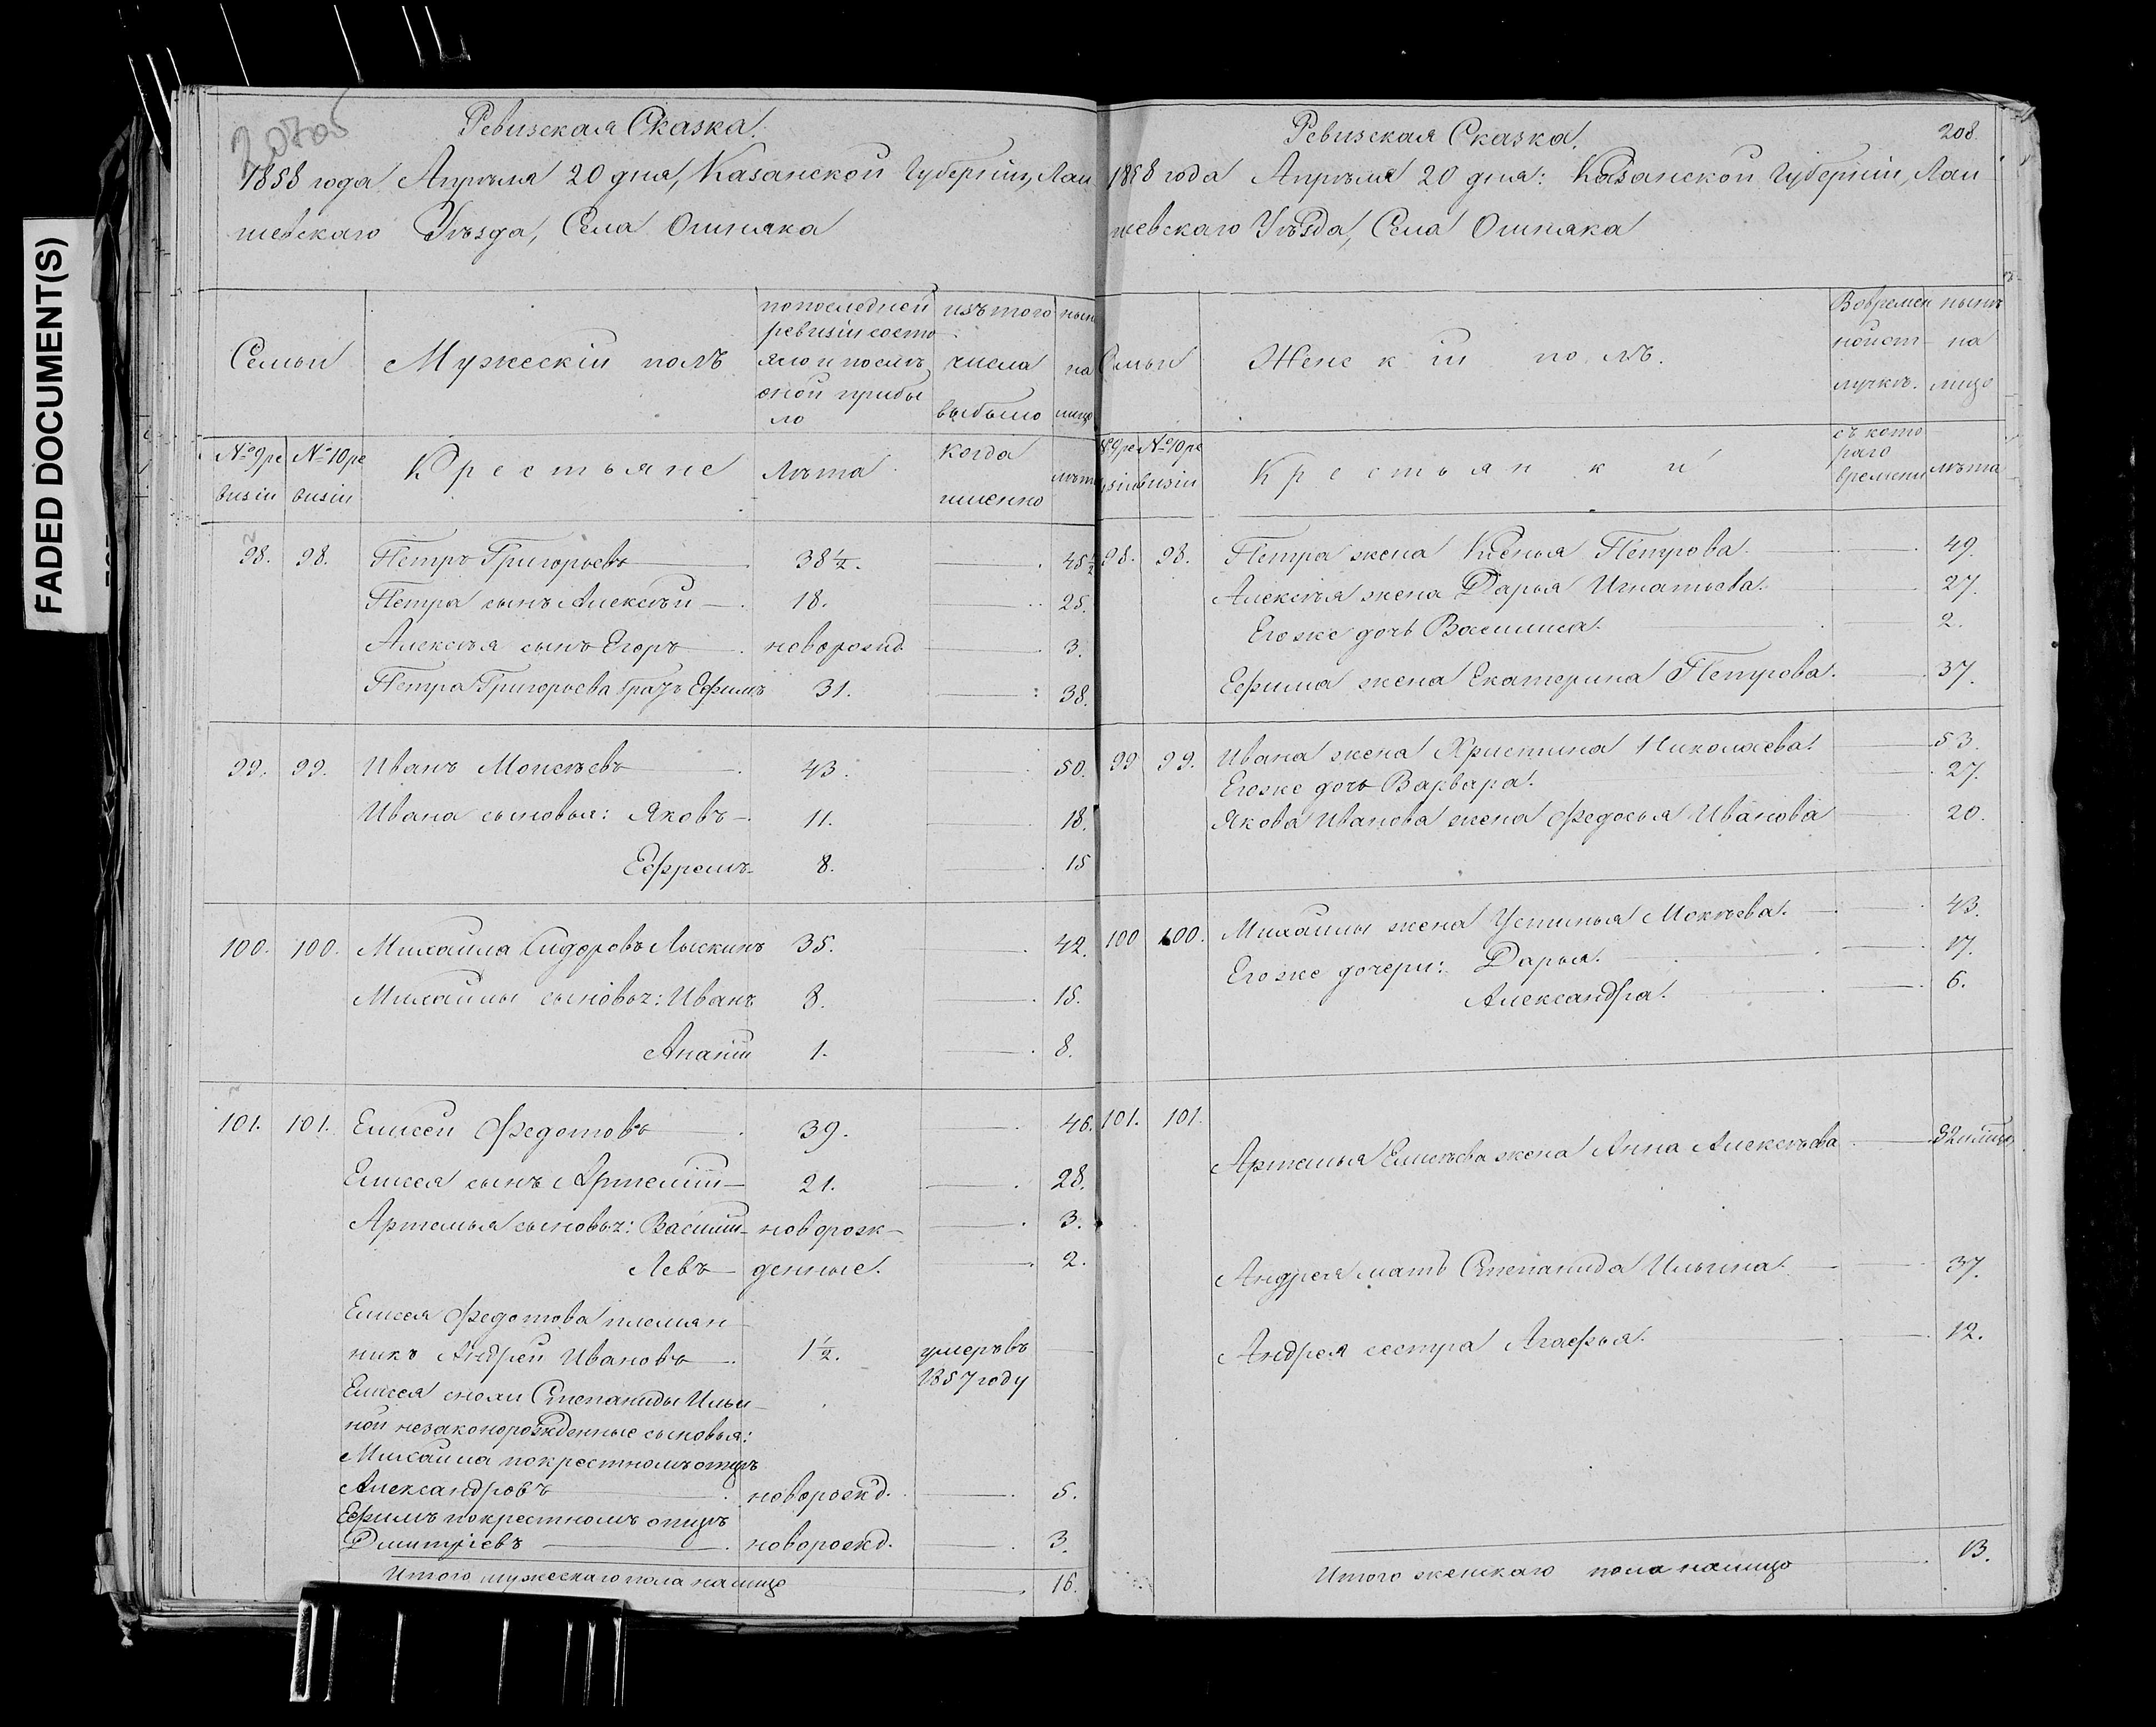 FADED DOCUMENT(S)
Ревизская Сказка.
1858 года Апрѣля 20 дня, Казанской Губерніи, Лаи
шевскаго Уѣзда, Села Ошняка
Семьи
Мужескій полъ
попоследней ревизіи состо яло и послѣ оной прибы ло
изъ того числа выбыло
ныне на лицо
№ 9 ре визіи
№ 10 ре визіи
Крестьяне
Лѣта
когда имменно
лѣта
98. 98. Петръ Григорьевъ 38 1/2. 45 1/2
Петра сынъ Алексѣй 18. 25.
Алексѣя сынъ Егоръ новорожд 3.
Петра Григорьева братъ Ефимъ 31. 38.
99. 99. Иванъ Моисѣевъ 43. 50.
Ивана сыновья: Яковъ 11. 18.
Ефремъ 8. 15
100. 100. Михаила Сидоровъ Лыскинъ 35. 42.
Михаилы сыновья: Иванъ 8. 15.
Ананій 1. 8.
101. 101. Елисей Федотовъ 39. 46.
Елисея сынъ Артемій 21. 28.
Артемья сыновья: Василій новорож- 3.
Левъ денные. 2.
Елисея Федотова племян
никъ Андрей Ивановъ 1 1/2. умеръ въ 1857 году
Елисея снохи Степаниды Ильи
ной незаконорожденные сыновья:
Михаила покрестномъ отцѣ
Александровъ новорожд. 5.
Ефимъ покрестномъ отцѣ
Дмитріевъ новорожд. 3.
Итого мужескаго пола налицо 16.
Ревизская Сказка. 208.
1858 года Апрѣля 20 дня: Казанской Губерніи, Лаи
шевскаго Уѣзда, Села Ошняка
Семьи
Женскій полъ.
Вовремен ной от лучкѣ.
нынѣ на лицо
№ 9 ре визіи
№ 10 ре визіи
Крестьянки
съ кото раго времени
лѣта
98. 98. Петра жена Ксенья Петрова 49.
Алексѣя жена Дарья Игнатьева. 27.
Егоже дочь Василиса. 2.
Ефима жена Екатерина Петрова. 37.
99 99. Ивана жена Христина Николаева. 53.
Егоже дочь Варвара. 27.
Якова Иванова жена Федосья Иванова 20.
100 100. Михаилы жена Устинья Мокѣева. 43.
Егоже дочери: Дарья. 17.
Александра. 6.
101. 101.
Артемья Елисѣева жена Анна Алексѣева 32
Андрея мать Степанида Ильина. 37.
Андрея сестра Агафья. 12.
Итого женскаго пола налицо 13.